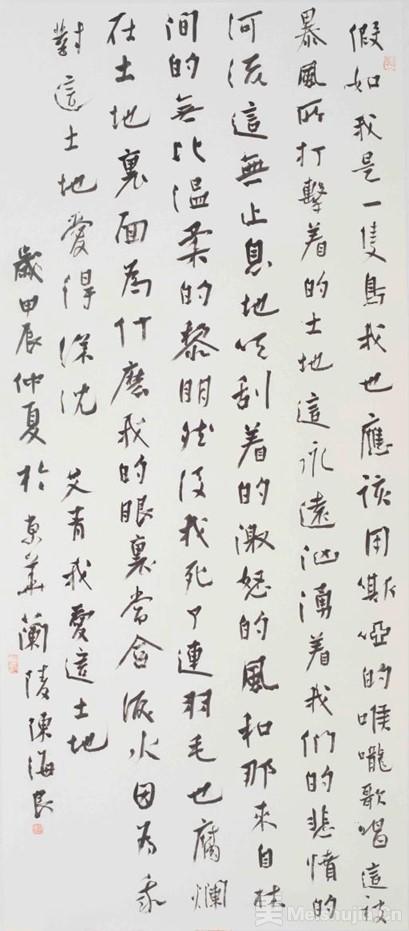 假如我是一隻鳥我也應該用嘶啞的喉嚨歌唱這被
暴風所打擊着的土地這永遠汹湧着我們的悲憤的
河流這無止息地吹刮着的激怒的風和那來自林
間的無比温柔的黎明然後我死了連羽毛也腐爛
在土地裏面為什麼我的眼裏常含淚水因為我
對這土地愛得深沈 艾青我愛這土地
歲甲辰仲夏於京華蘭陵陳海良
美 Meishujia.cn